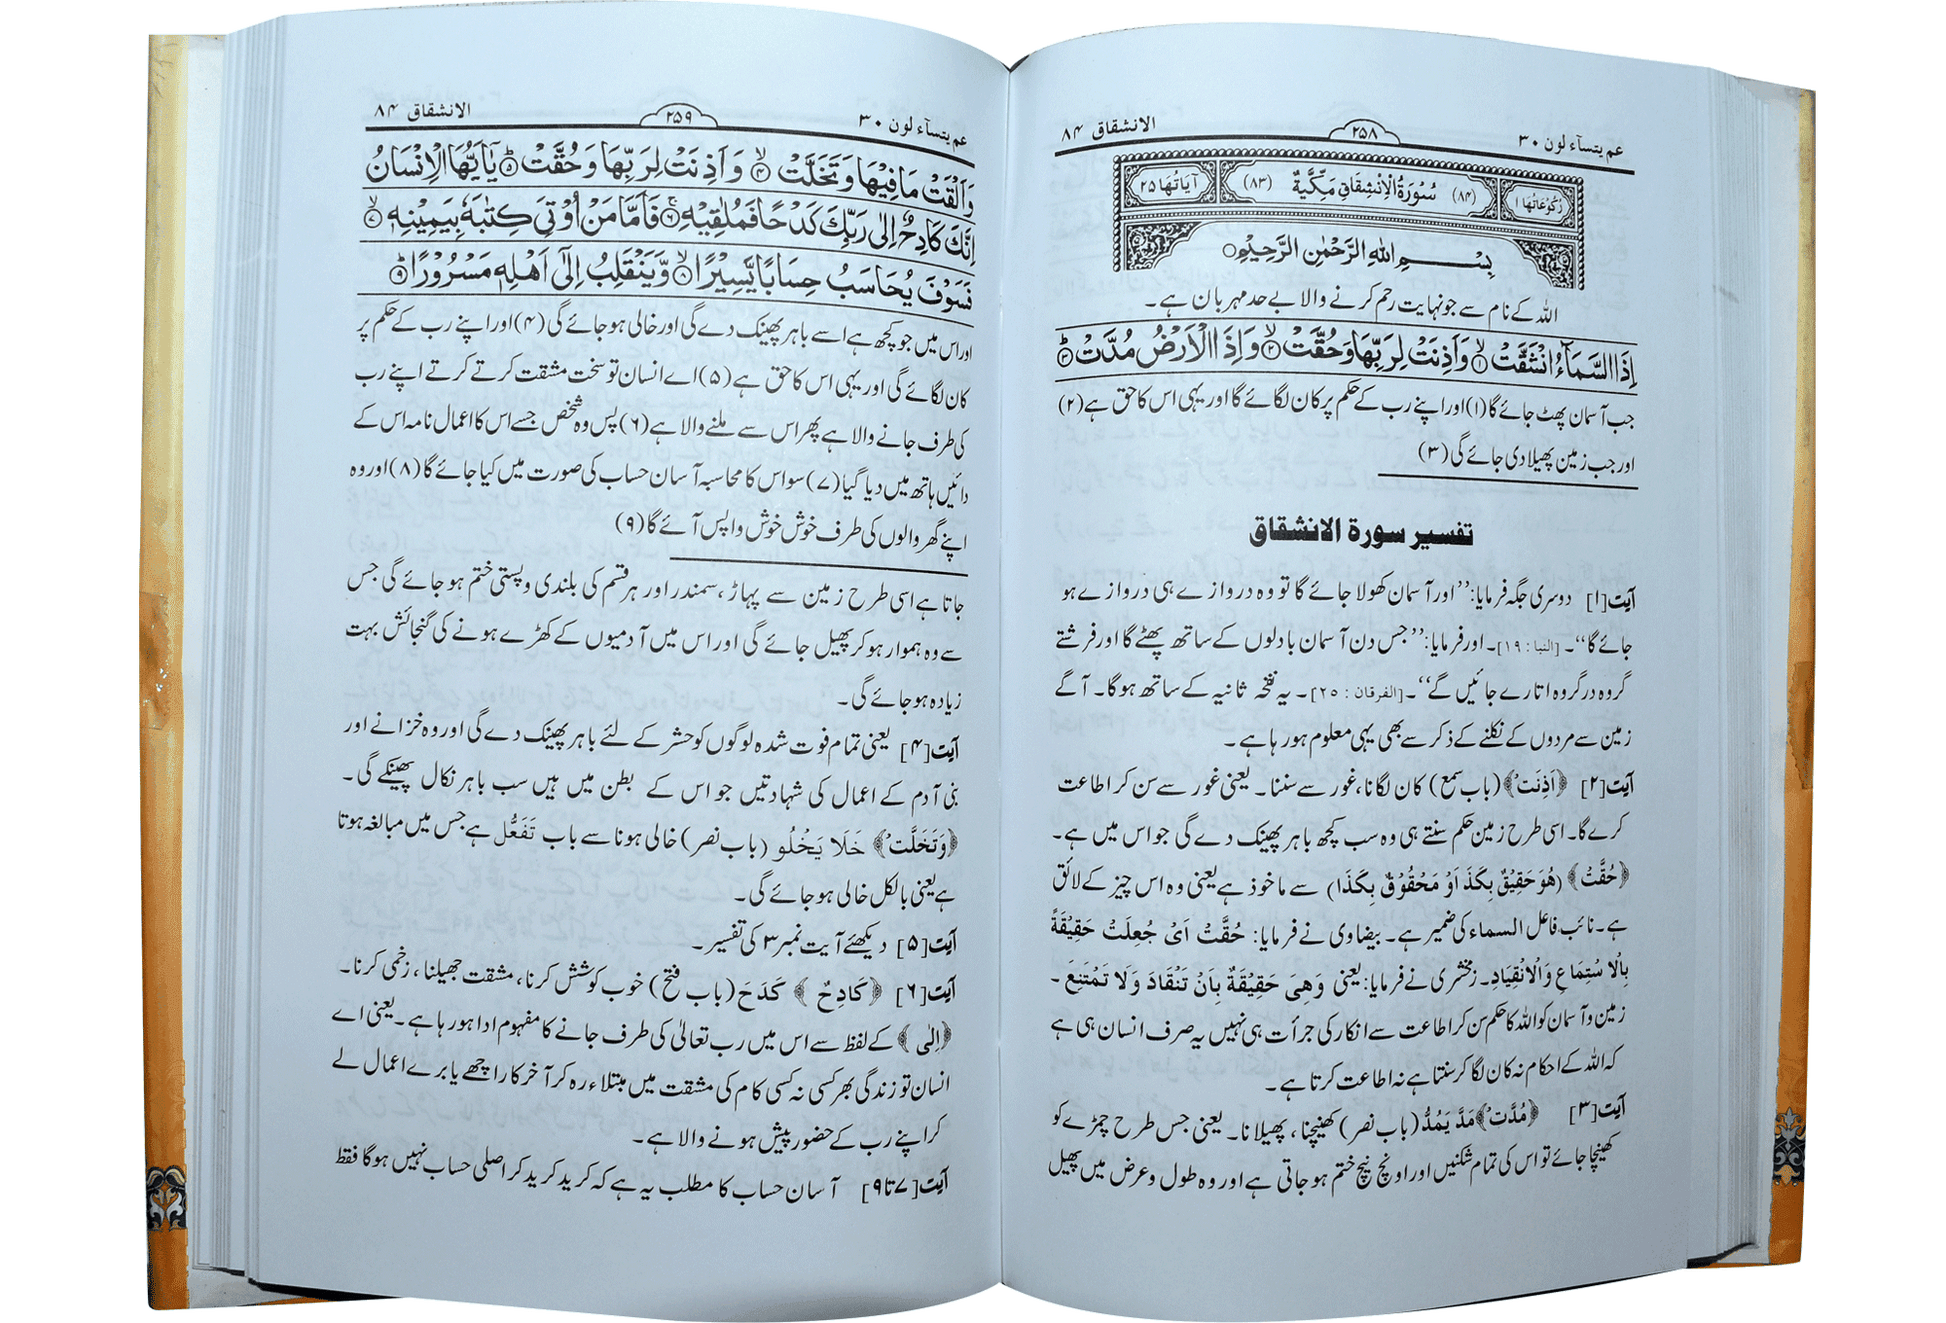 عم یتسآء لون ۳۰
۲۵۸
الانشقاق ۸۴
رُکُوْعَاتُهَا ۱
(۸۴) سُوْرَةُ الْاِنْشِقَاقِ مَکِّیَّةٌ (۸۳)
اٰیَاتُهَا ۲۵
بِسْمِ اللّٰهِ الرَّحْمٰنِ الرَّحِیْمِ
اللہ کے نام سے جو نہایت رحم کرنے والا بے حد مہربان ہے۔
اِذَا السَّمَآءُ انْشَقَّتْ ۱ وَاَذِنَتْ لِرَبِّهَا وَحُقَّتْ ۲ وَاِذَا الْاَرْضُ مُدَّتْ ۳
جب آسمان پھٹ جائے گا (۱) اور اپنے رب کے حکم پر کان لگائے گا اور یہی اس کا حق ہے (۲)
اور جب زمین پھیلا دی جائے گی (۳)
تفسیر سورة الانشقاق
آیت [۱] دوسری جگہ فرمایا: ’’اور آسمان کھولا جائے گا تو وہ دروازے ہی دروازے ہو
جائے گا‘‘۔ [النبا : ۱۹]۔ اور فرمایا: ’’جس دن آسمان بادلوں کے ساتھ پھٹے گا اور فرشتے
گروہ در گروہ اتارے جائیں گے‘‘۔ [الفرقان : ۲۵]۔ یہ نفخہ ثانیہ کے ساتھ ہوگا۔ آگے
زمین سے مردوں کے نکلنے کے ذکر سے بھی یہی معلوم ہو رہا ہے۔
آیت [۲] ﴿اَذِنَتْ﴾ (باب سمع) کان لگانا، غور سے سننا۔ یعنی غور سے سن کر اطاعت
کرے گا۔ اسی طرح زمین حکم سنتے ہی وہ سب کچھ باہر پھینک دے گی جو اس میں ہے۔
﴿حُقَّتْ﴾ (هُوَ حَقِیْقٌ بِکَذَا اَوْ مَحْقُوْقٌ بِکَذَا) سے ماخوذ ہے یعنی وہ اس چیز کے لائق
ہے۔ نائب فاعل السماء کی ضمیر ہے۔ بیضاوی نے فرمایا: حُقَّتْ اَیْ جُعِلَتْ حَقِیْقَةً
بِالْاِسْتِمَاعِ وَالْاِنْقِیَادِ۔ زمخشری نے فرمایا: یعنی وَهِیَ حَقِیْقَةٌ بِاَنْ تَنْقَادَ وَلَا تَمْتَنِعَ۔
زمین و آسمان کو اللہ کا حکم سن کر اطاعت سے انکار کی جرأت ہی نہیں یہ صرف انسان ہی ہے
کہ اللہ کے احکام نہ کان لگا کر سنتا ہے نہ اطاعت کرتا ہے۔
آیت [۳] ﴿مُدَّتْ﴾ مَدَّ یَمُدُّ (باب نصر) کھینچنا، پھیلانا۔ یعنی جس طرح چمڑے کو
کھینچا جائے تو اس کی تمام شکنیں اور اونچ نیچ ختم ہو جاتی ہے اور وہ طول و عرض میں پھیل
عم یتسآء لون ۳۰
۲۵۹
الانشقاق ۸۴
وَاَلْقَتْ مَا فِیْهَا وَتَخَلَّتْ ۴ وَاَذِنَتْ لِرَبِّهَا وَحُقَّتْ ۵ یٰۤاَیُّهَا الْاِنْسَانُ
اِنَّکَ کَادِحٌ اِلٰی رَبِّکَ کَدْحًا فَمُلٰقِیْهِ ۶ فَاَمَّا مَنْ اُوْتِیَ کِتٰبَهٗ بِیَمِیْنِهٖ ۷
فَسَوْفَ یُحَاسَبُ حِسَابًا یَّسِیْرًا ۸ وَّیَنْقَلِبُ اِلٰۤی اَهْلِهٖ مَسْرُوْرًا ۹
اور اس میں جو کچھ ہے اسے باہر پھینک دے گی اور خالی ہو جائے گی (۴) اور اپنے رب کے حکم پر
کان لگائے گی اور یہی اس کا حق ہے (۵) اے انسان تو سخت مشقت کرتے کرتے اپنے رب
کی طرف جانے والا ہے پھر اس سے ملنے والا ہے (۶) پس وہ شخص جسے اس کا اعمال نامہ اس کے
دائیں ہاتھ میں دیا گیا (۷) سو اس کا محاسبہ آسان حساب کی صورت میں کیا جائے گا (۸) اور وہ
اپنے گھر والوں کی طرف خوش خوش واپس آئے گا (۹)
جاتا ہے اسی طرح زمین سے پہاڑ، سمندر اور ہر قسم کی بلندی و پستی ختم ہو جائے گی جس
سے وہ ہموار ہو کر پھیل جائے گی اور اس میں آدمیوں کے کھڑے ہونے کی گنجائش بہت
زیادہ ہو جائے گی۔
آیت [۴] یعنی تمام فوت شدہ لوگوں کو حشر کے لئے باہر پھینک دے گی اور وہ خزانے اور
بنی آدم کے اعمال کی شہادتیں جو اس کے بطن میں ہیں سب باہر نکال پھینکے گی۔
﴿وَتَخَلَّتْ﴾ خَلَا یَخْلُو (باب نصر) خالی ہونا سے باب تَفَعُّل ہے جس میں مبالغہ ہوتا
ہے یعنی بالکل خالی ہو جائے گی۔
آیت [۵] دیکھئے آیت نمبر ۳ کی تفسیر۔
آیت [۶] ﴿کَادِحٌ﴾ کَدَحَ (باب فتح) خوب کوشش کرنا، مشقت جھیلنا، زخمی کرنا۔
﴿اِلٰی﴾ کے لفظ سے اس میں رب تعالیٰ کی طرف جانے کا مفہوم ادا ہو رہا ہے۔ یعنی اے
انسان تو زندگی بھر کسی نہ کسی کام کی مشقت میں مبتلاء رہ کر آخر کار اچھے یا برے اعمال لے
کر اپنے رب کے حضور پیش ہونے والا ہے۔
آیت [۷ تا ۹] آسان حساب کا مطلب یہ ہے کہ کرید کرید کر اصلی حساب نہیں ہوگا فقط